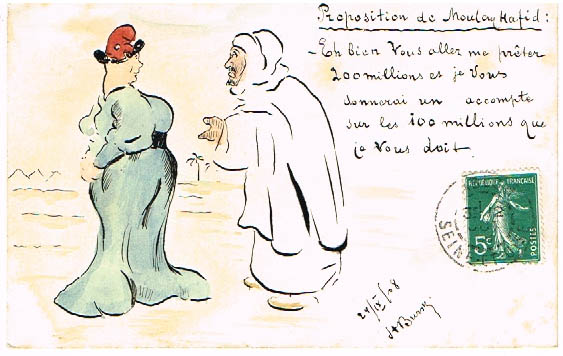 Proposition de Moulay Hafid :
- Eh bien Vous aller me prêter
200 millions et je Vous
donnerai un accompte
sur les 100 millions que
je Vous doit.
REPUBLIQUE FRANÇAISE
5c
POSTES
SEINE